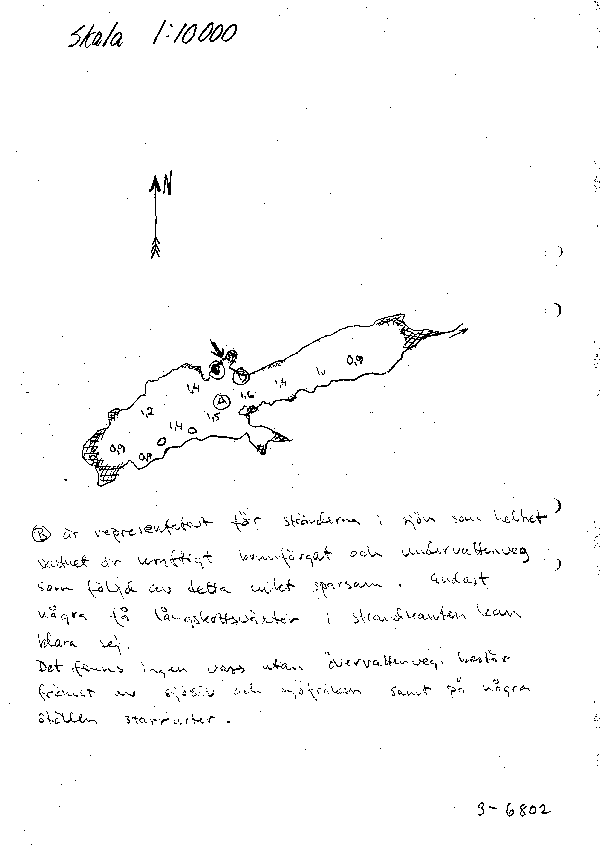 Skala 1:10000
N
0,9
1,4
1,4
1,6
1,2
A
1,5
1,4
0,9
0,9
B är representativt för stränderna i sjön som helhet
vattnet är kraftigt brunfärgat och undervattenveg
som följd av detta mket sparsam. Endast
några få långskottsväxter i strandkanten kan
klara sej.
Det finns ingen vass utan övervattenveg. består
främst av sjösäv och sjöfräken samt på några
ställen starrarter.
3-6802